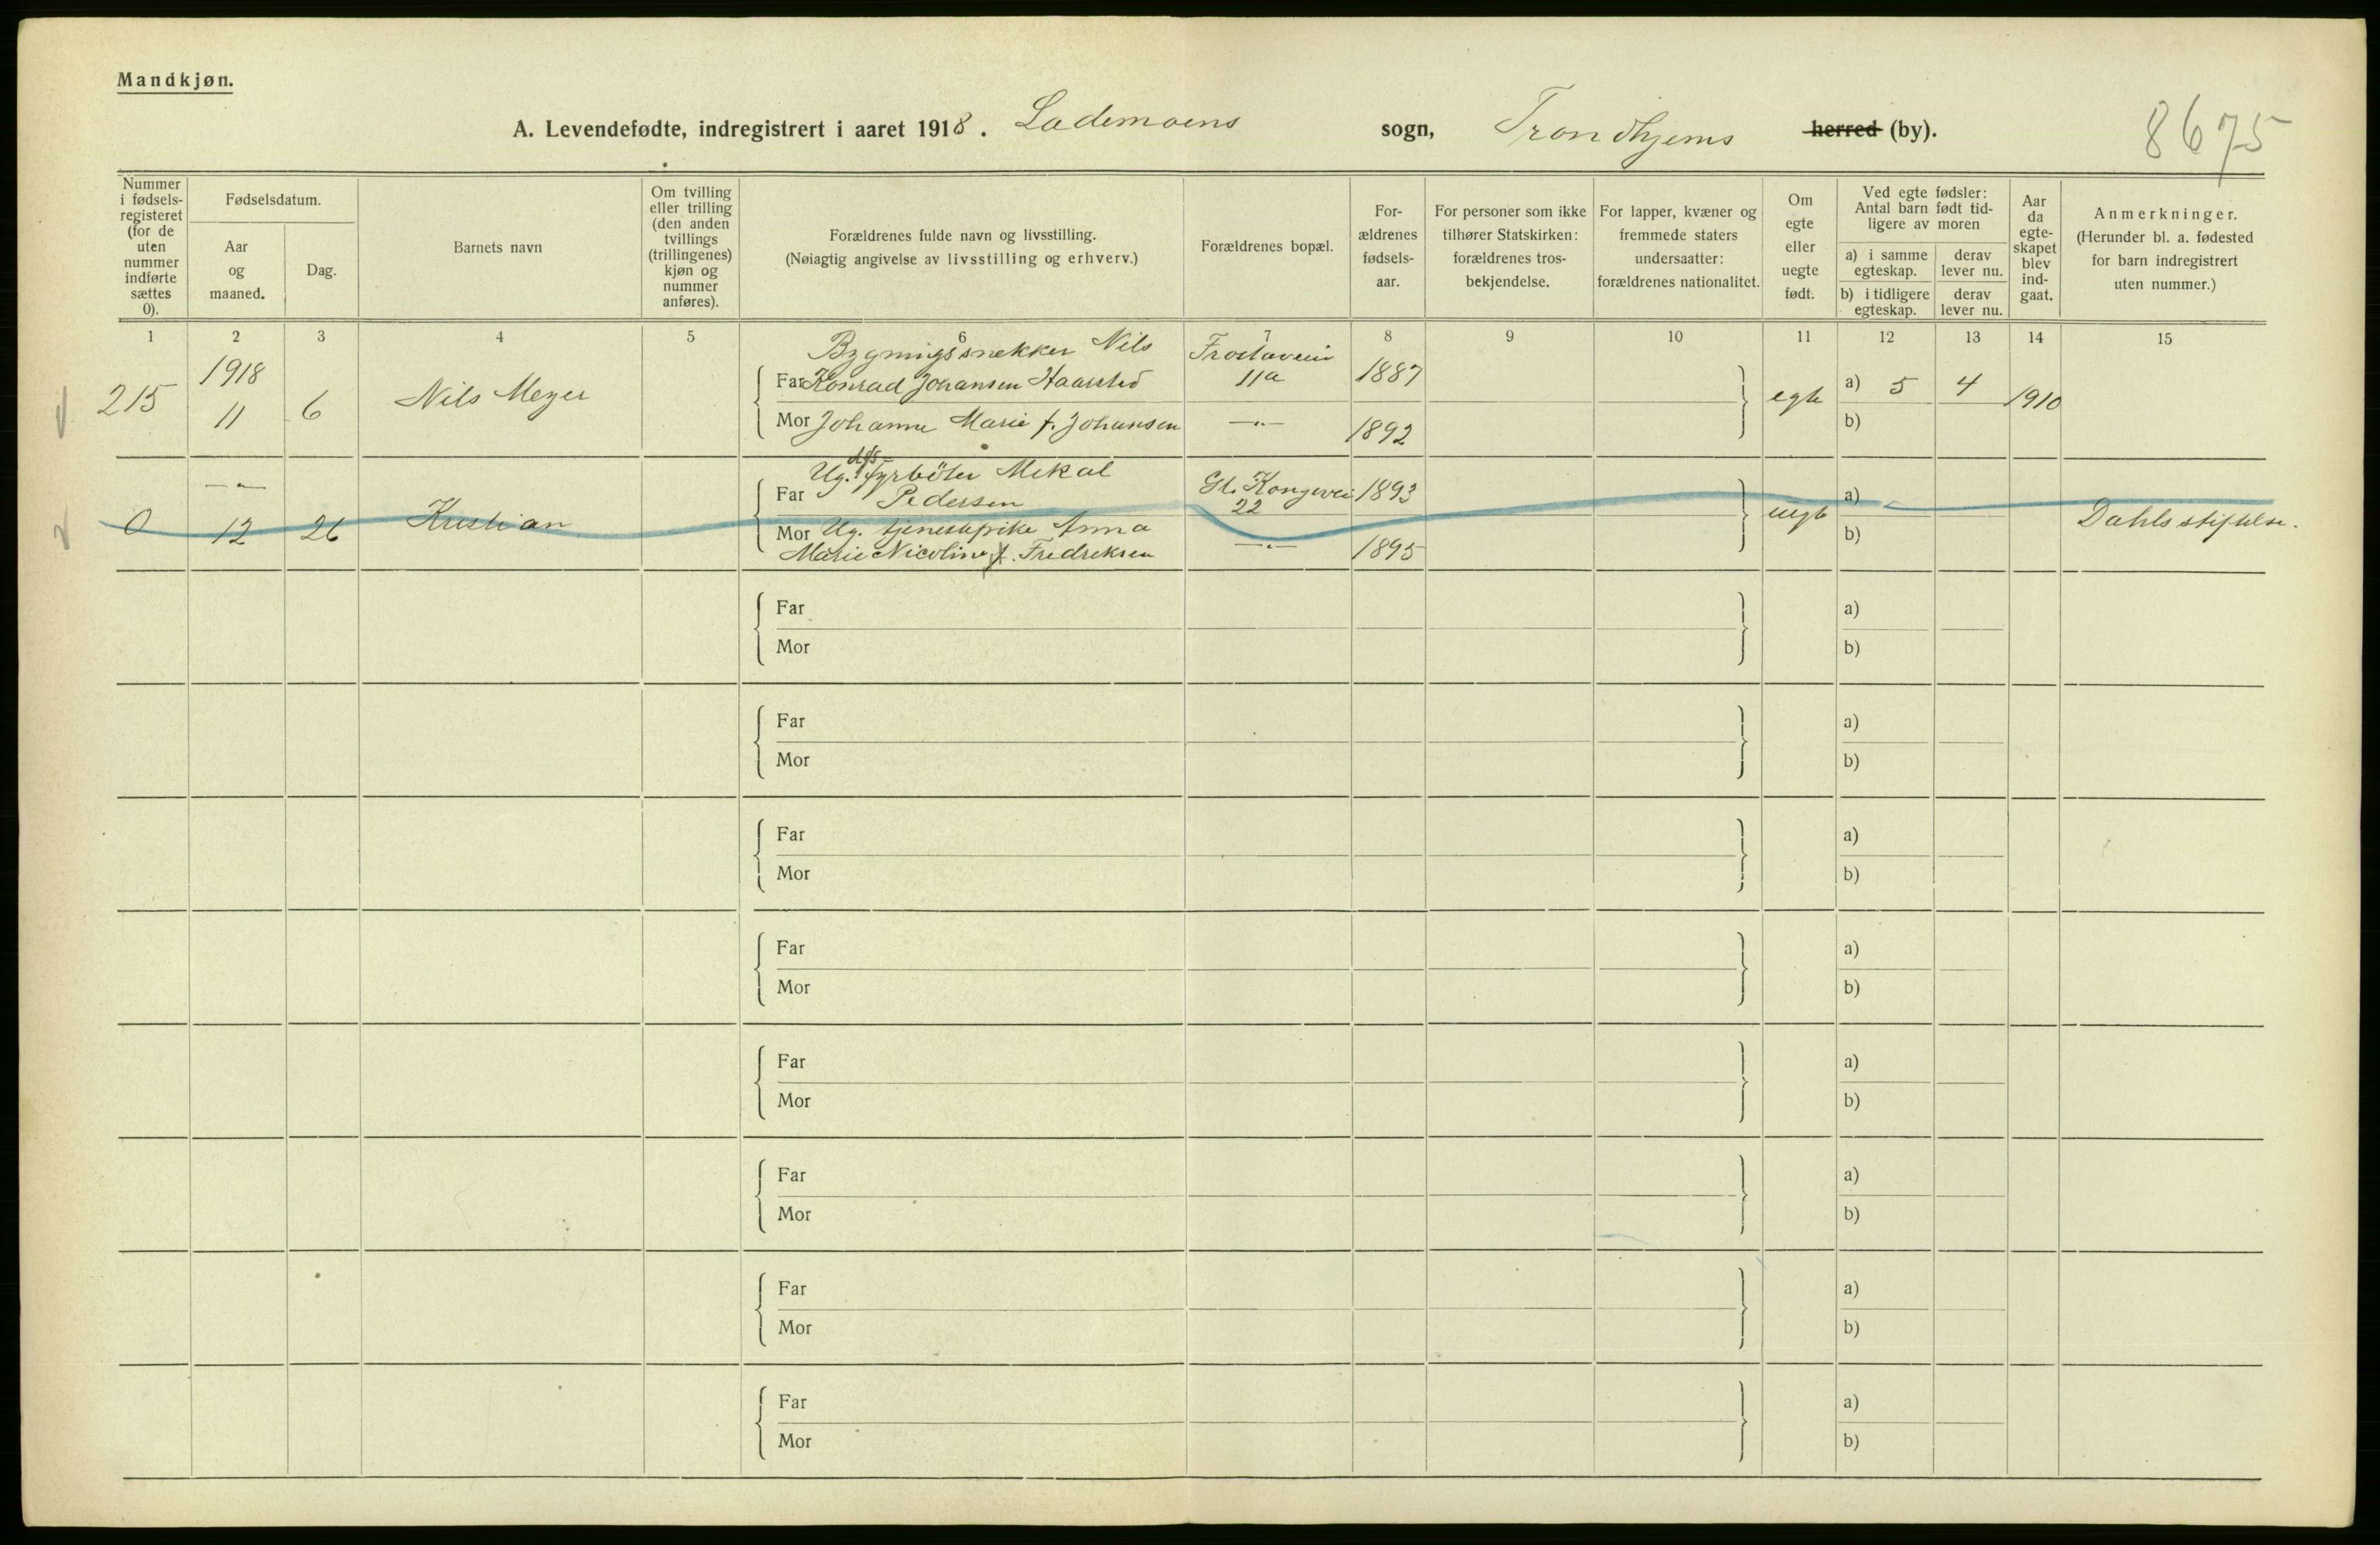 Mandkjøn.
A. Levendefødte, indregistrert i aaret 1918. Lademoens sogn, Trondhjems herred (by).
8675
Nummer i fødsels-registeret (for de uten nummer indførte sættes 0).
Fødselsdatum.
Aar og maaned.
Dag.
Barnets navn
Om tvilling eller trilling (den anden tvillings (trillingenes) kjøn og nummer anføres).
Forældrenes fulde navn og livsstilling.
(Nøiagtig angivelse av livsstilling og erhverv.)
Forældrenes bopæl.
For-ældrenes fødsels-aar.
For personer som ikke tilhører Statskirken: forældrenes tros-bekjendelse.
For lapper, kvæner og fremmede staters undersaatter: forældrenes nationalitet.
Om egte eller uegte født.
Ved egte fødsler: Antal barn født tid-ligere av moren
a) i samme egteskap.
derav lever nu.
b) i tidligere egteskap.
derav lever nu.
Aar da egte-skapet blev ind-gaat.
Anmerkninger.
(Herunder bl. a. fødested for barn indregistrert uten nummer.)
1 2 3 4 5 6 7 8 9 10 11 12 13 14 15
Bygningssnekker Nils Frostaveien
215 1918 11 6 Nils Meyer Far Konrad Johansen Haarstad 11a 1887 egte a) 5 4 1910
Mor Johanne Marie f. Johansen —"— 1892 b)
Ug. Fyrbøter Mekal
—"— Far Pedersen Gl. Kongevei 22 1893 a)
0 12 26 Kristian Mor Ug. tjenestepike Anna uegte b) Dahls stiftelse.
Marie Nicoline f. Fredreksen —"— 1895
Far a)
Mor b)
Far a)
Mor b)
Far a)
Mor b)
Far a)
Mor b)
Far a)
Mor b)
Far a)
Mor b)
Far a)
Mor b)
Far a)
Mor b)